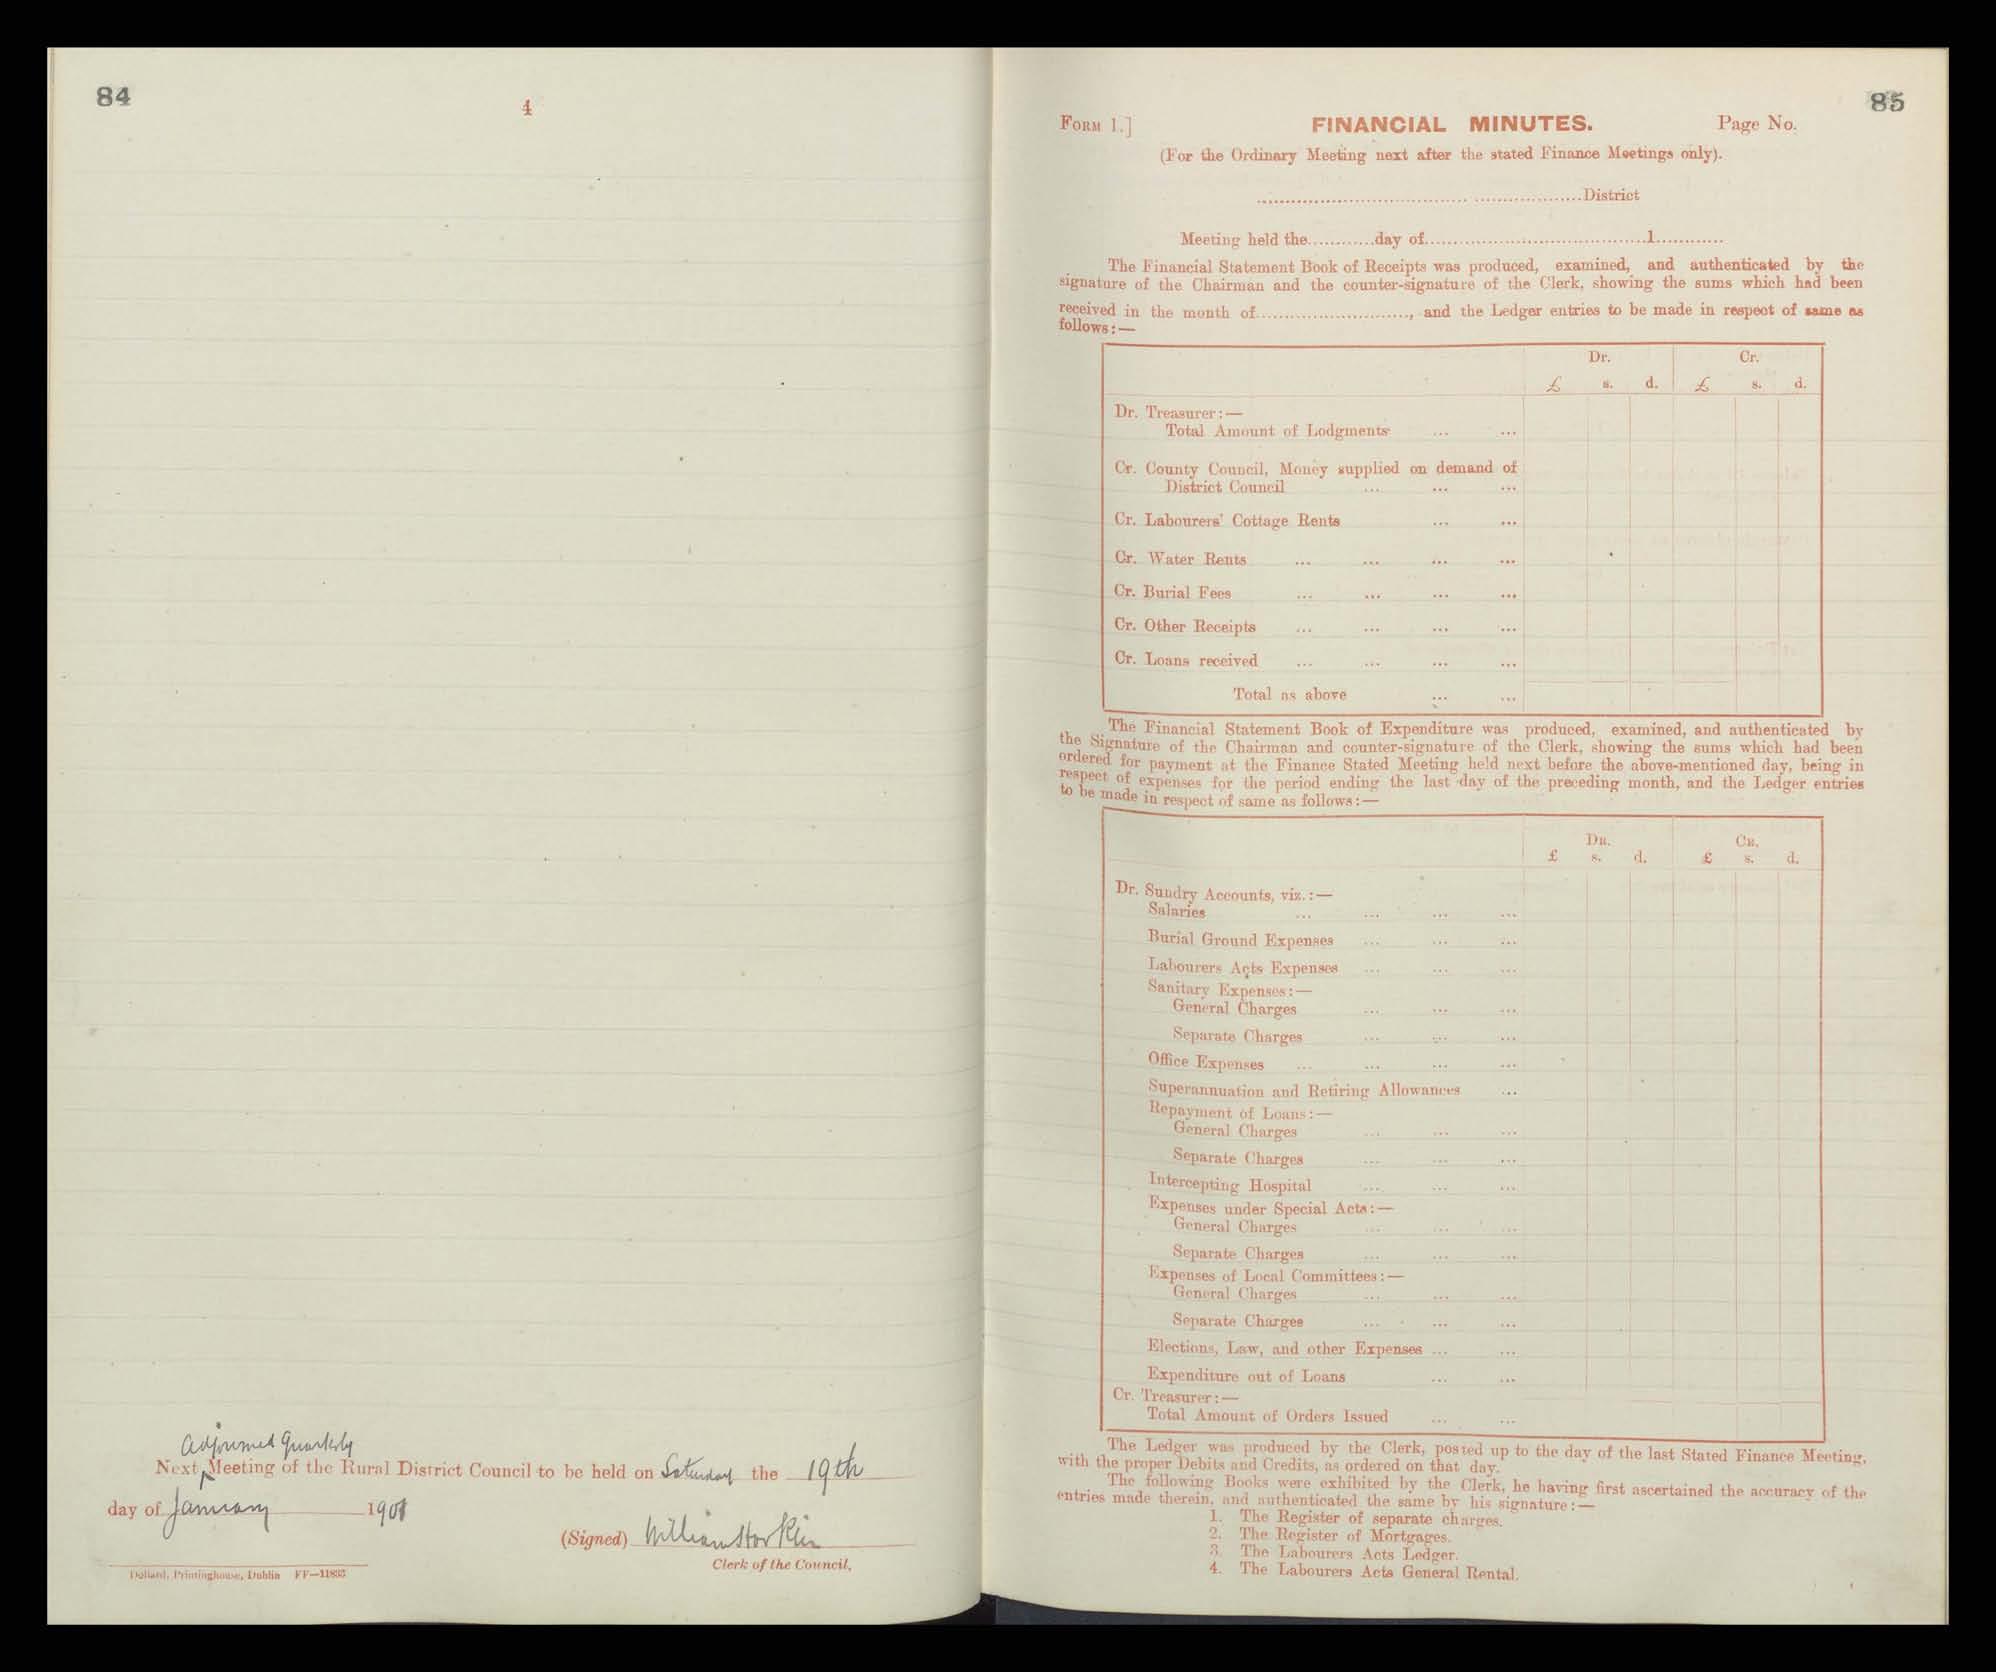 84
4
Adjourned Quarterly
Next Meeting of the Rural District Council to be held on Saturday the 19th
day of January 1901
(Signed) William Horkin
Clerk of the Council,
Dollard, Printinghouse, Dublin FF—11833
85
FORM 1.] FINANCIAL MINUTES. Page No.
(For the Ordinary Meeting next after the stated Finance Meetings only).
District
Meeting held the............day of........................................1............
The Financial Statement Book of Receipts was produced, examined, and authenticated by the
signature of the Chairman and the counter-signature of the Clerk, showing the sums which had been
received in the month of..........................., and the Ledger entries to be made in respect of same as
follows:—
Dr. Cr.
£ s. d. £ s. d.
Dr. Treasurer:—
Total Amount of Lodgments ... ...
Cr. County Council, Money supplied on demand of
District Council ... ... ...
Cr. Labourers' Cottage Rents ... ...
Cr. Water Rents ... ... ... ...
Cr. Burial Fees ... ... ... ...
Cr. Other Receipts ... ... ... ...
Cr. Loans received ... ... ... ...
Total as above ... ...
The Financial Statement Book of Expenditure was produced, examined, and authenticated by
the Signature of the Chairman and counter-signature of the Clerk, showing the sums which had been
ordered for payment at the Finance Stated Meeting held next before the above-mentioned day, being in
respect of expenses for the period ending the last day of the preceding month, and the Ledger entries
to be made in respect of same as follows:—
DR. CR.
£ s. d. £ s. d.
Dr. Sundry Accounts, viz.:—
Salaries ... ... ... ...
Burial Ground Expenses ... ... ...
Labourers Acts Expenses ... ... ...
Sanitary Expenses:—
General Charges ... ... ...
Separate Charges ... ... ...
Office Expenses ... ... ... ...
Superannuation and Retiring Allowances ...
Repayment of Loans:—
General Charges ... ... ...
Separate Charges ... ... ...
Intercepting Hospital ... ... ...
Expenses under Special Acts:—
General Charges ... ... ...
Separate Charges ... ... ...
Expenses of Local Committees:—
General Charges ... ... ...
Separate Charges ... ... ...
Elections, Law, and other Expenses ... ...
Expenditure out of Loans ... ...
Cr. Treasurer:—
Total Amount of Orders Issued ... ...
The Ledger was produced by the Clerk, posted up to the day of the last Stated Finance Meeting,
with the proper Debits and Credits, as ordered on that day.
The following Books were exhibited by the Clerk, he having first ascertained the accuracy of the
entries made therein, and authenticated the same by his signature:—
1. The Register of separate charges.
2. The Register of Mortgages.
3. The Labourers Acts Ledger.
4. The Labourers Acts General Rental.